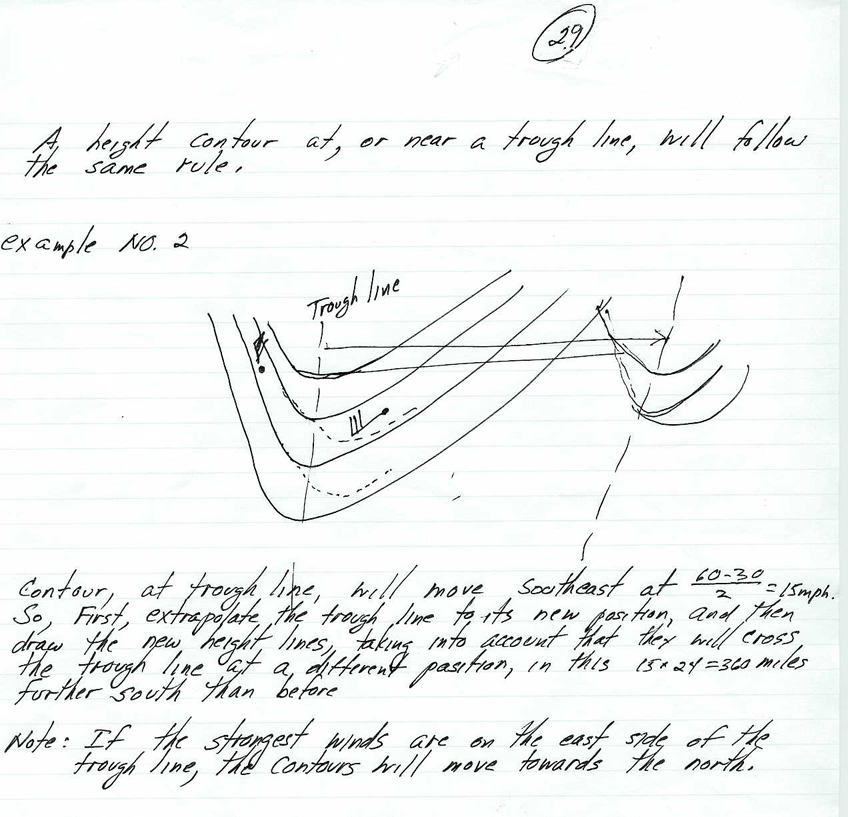 29
A height contour at, or near a trough line, will follow
the same rule.
example NO. 2
Trough line
Contour, at trough line, will move Southeast at 60-30/2 = 15mph.
So, First, extrapolate the trough line to its new position, and then
draw the new height lines, taking into account that they will cross
the trough line at a different position, in this 15 x 24 = 360 miles
further south than before
Note: If the strongest winds are on the east side of the
trough line, the contours will move towards the north.